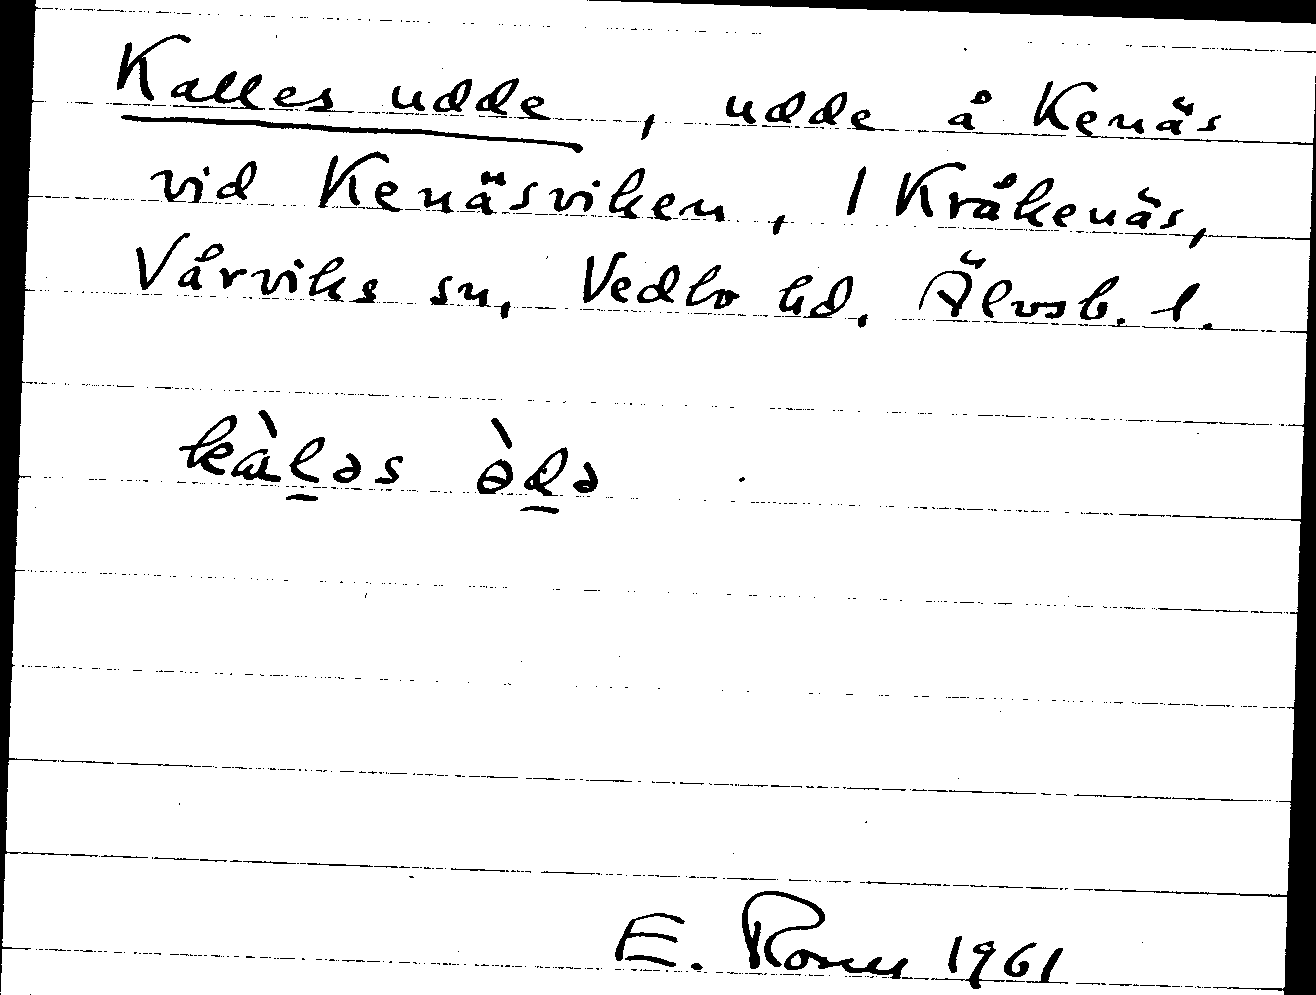 Kalles udde, udde å Kenäs
vid Kenäsviken, 1 Kråkenäs,
Vårviks sn, Vedbo hd. Älvsb. l.
kàl̠əs òd̠ə
E. 1961